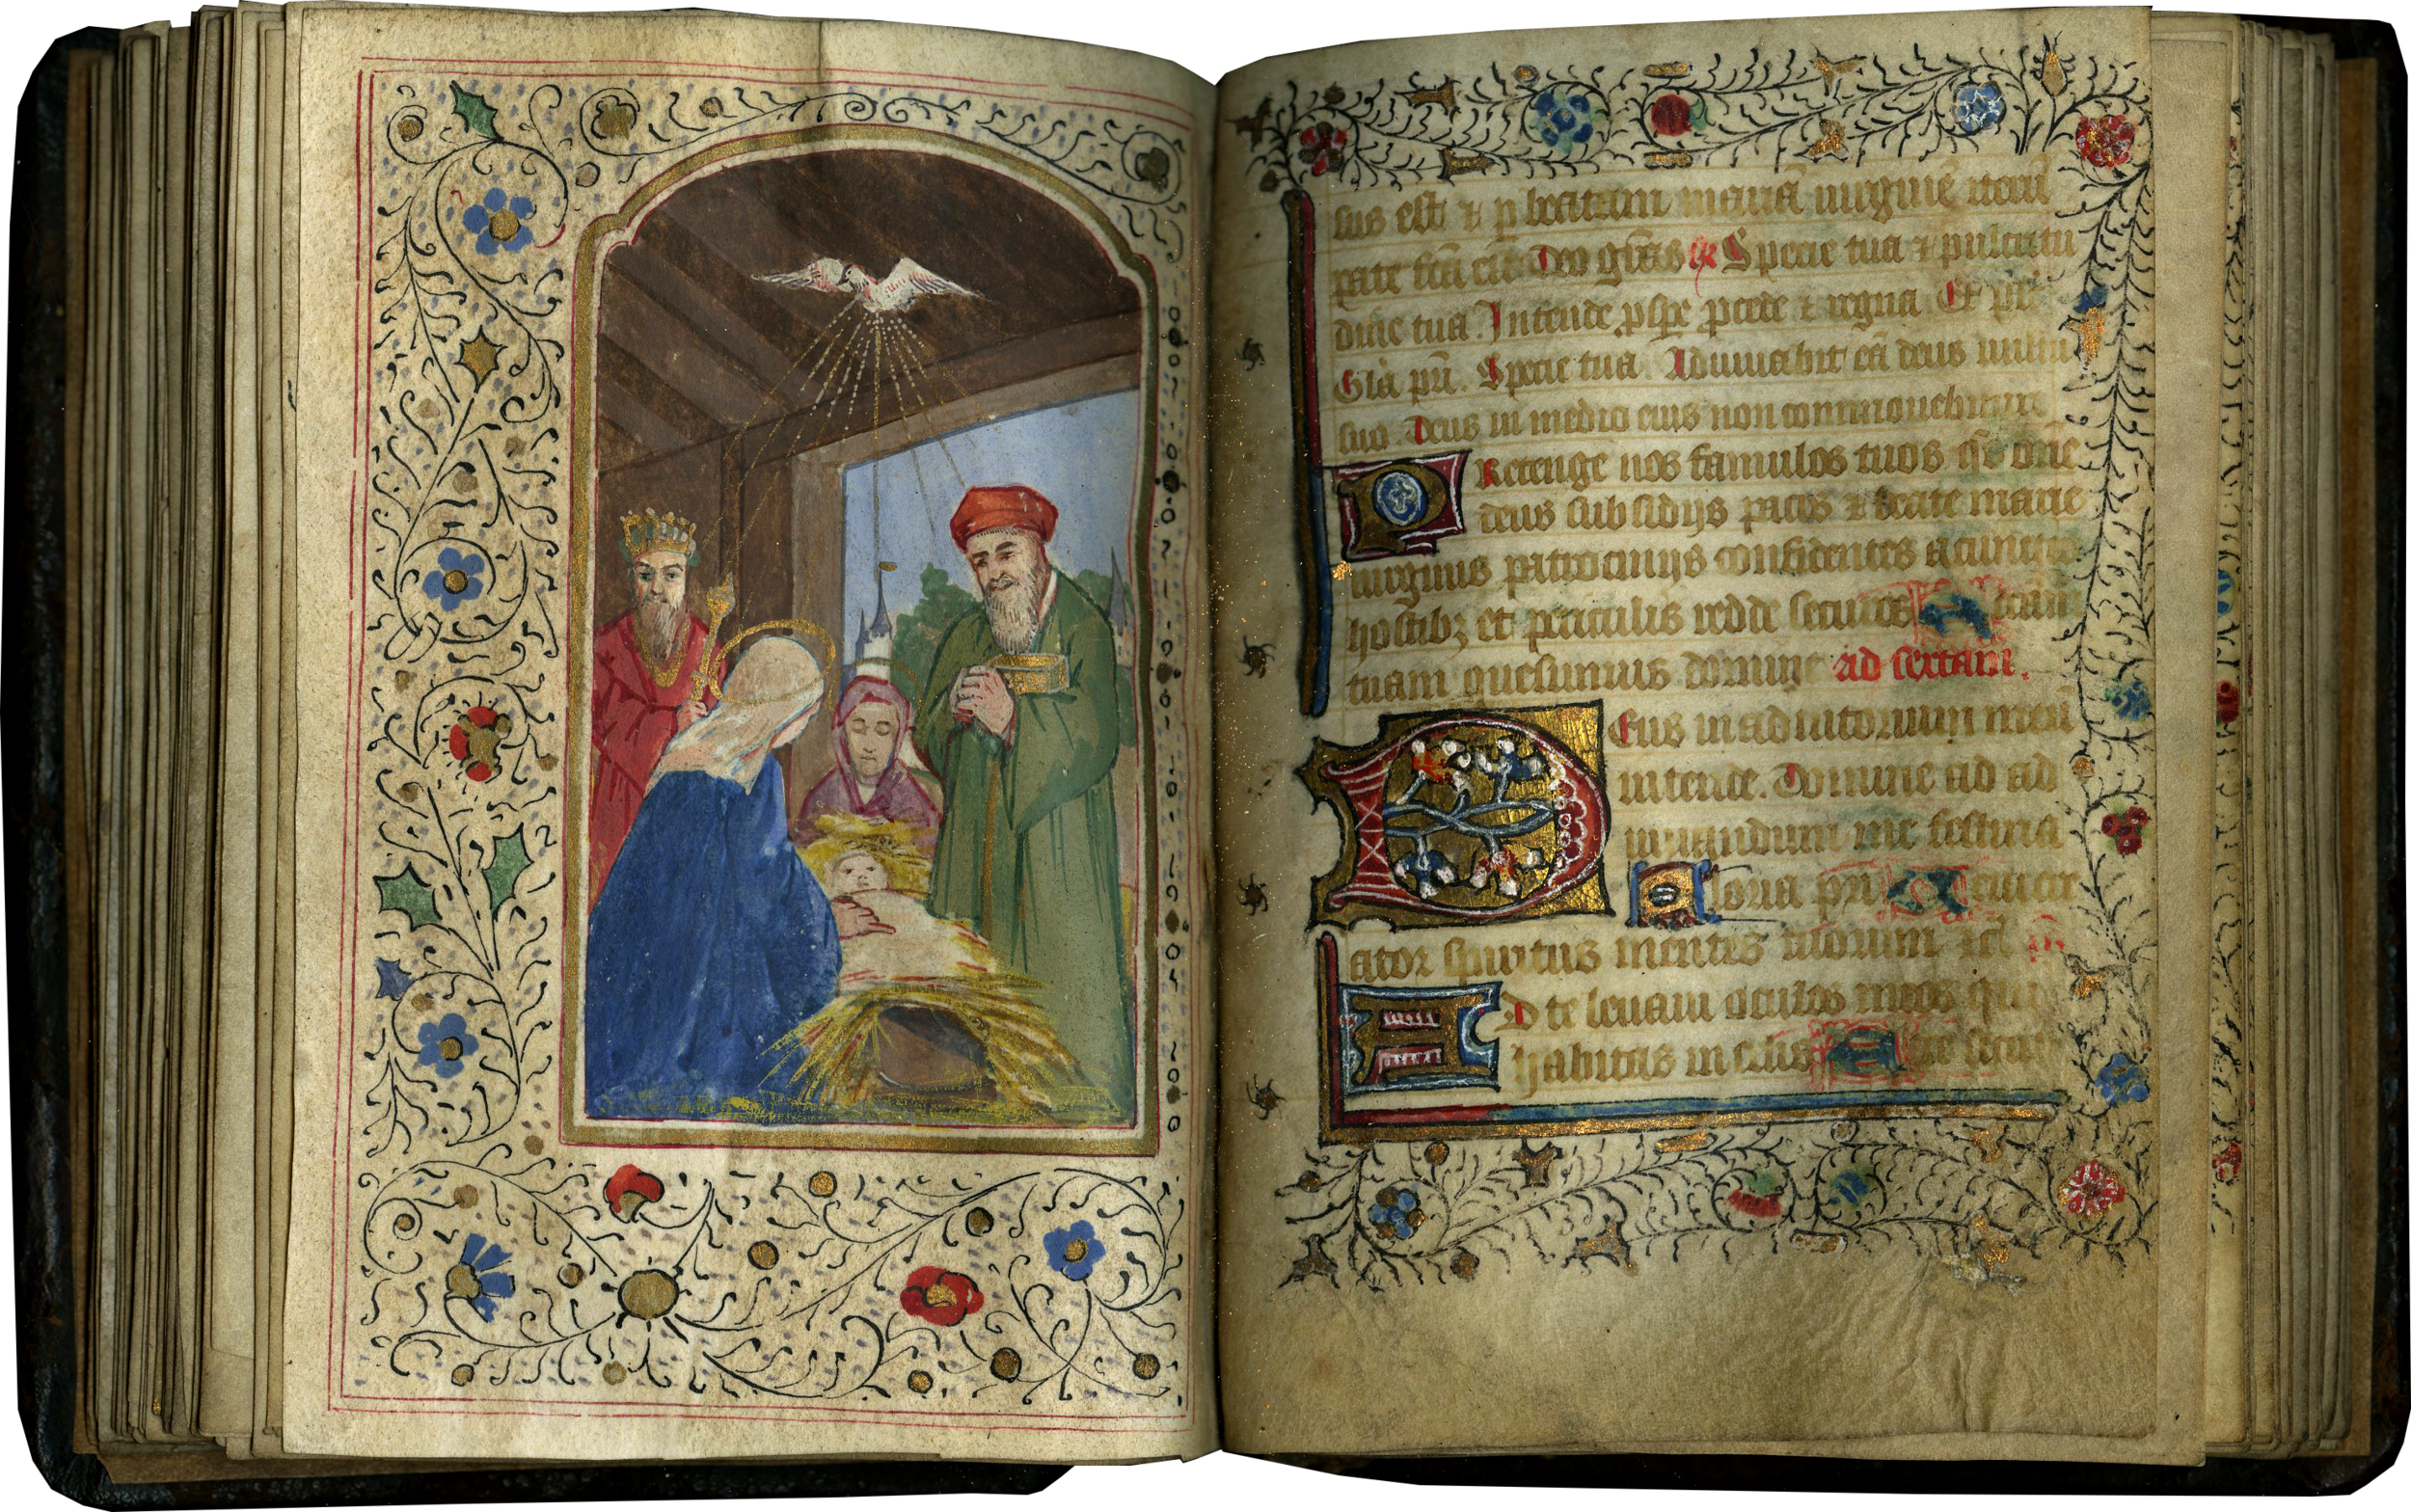 sus est ⁊ p beatam mariā uirginē iterū
parate factū est Deo grās ℟ Specie tua ⁊ pulcritu
dine tua. Intende pspe pcede ⁊ regna Et
Glā pri. Specie tua Adiuuabit eā deus uultu
suo. Deus in medio eius non commouebitur
Protenge nos famulos tuos qs dne
deus subsidijs pacis ⁊ beate marie
uirginis patrocinijs confidentes a cunctis
hostibz et periculis redde securos
tuam quesumus domine ad sextam.
Deus in adiutorium meū
intende. Domine ad ad
iuuandum me festina
Gloria pri Veni cre
ator spiritus mentes tuorum
Ad te leuaui oculos meos qui
habitas in celis Ecce sicut